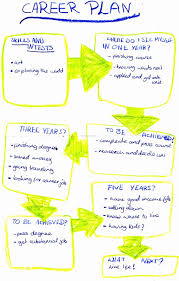 CAREER PLAN
SKILLS AND
INTESTS
• art
• exploring the world
WHERE DO I SEE MYSELF
IN ONE YEAR?
• finishing course
• having units
• applied and got into
uni
THREE YEARS?
• finishing degree
• saved money
• going travelling
• looking for career job
TO BE ACHIEVED?
• complete and pass course
• research and decide uni
TO BE ACHIEVED?
• pass degree
• get substancial job
FIVE YEARS?
• have good income job
• settling down
• know where to live
• having kids?
WHAT NEXT?
live life!